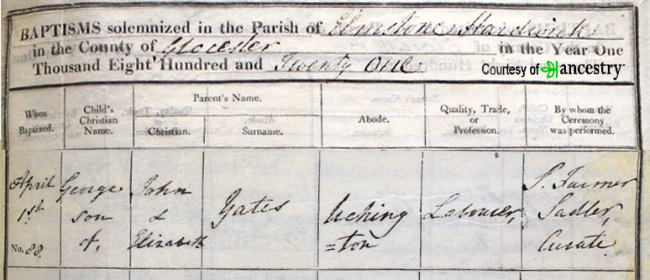 BAPTISMS solemnized in the Parish of Elmstone Hardwicke
in the County of Glocester in the Year One
Thousand Eight Hundred and Twenty One.
Courtesy of ancestry™
When Baptized.
Child's Christian Name.
Parent's Name.
Christian.
Surname.
Abode.
Quality, Trade, or Profession.
By whom the Ceremony was performed.
April
1st
No. 88.
George
son
of,
John
&
Elizabeth
Yates
Uching
=ton
Labourer,
S. Farmer
Sadler,
Curate